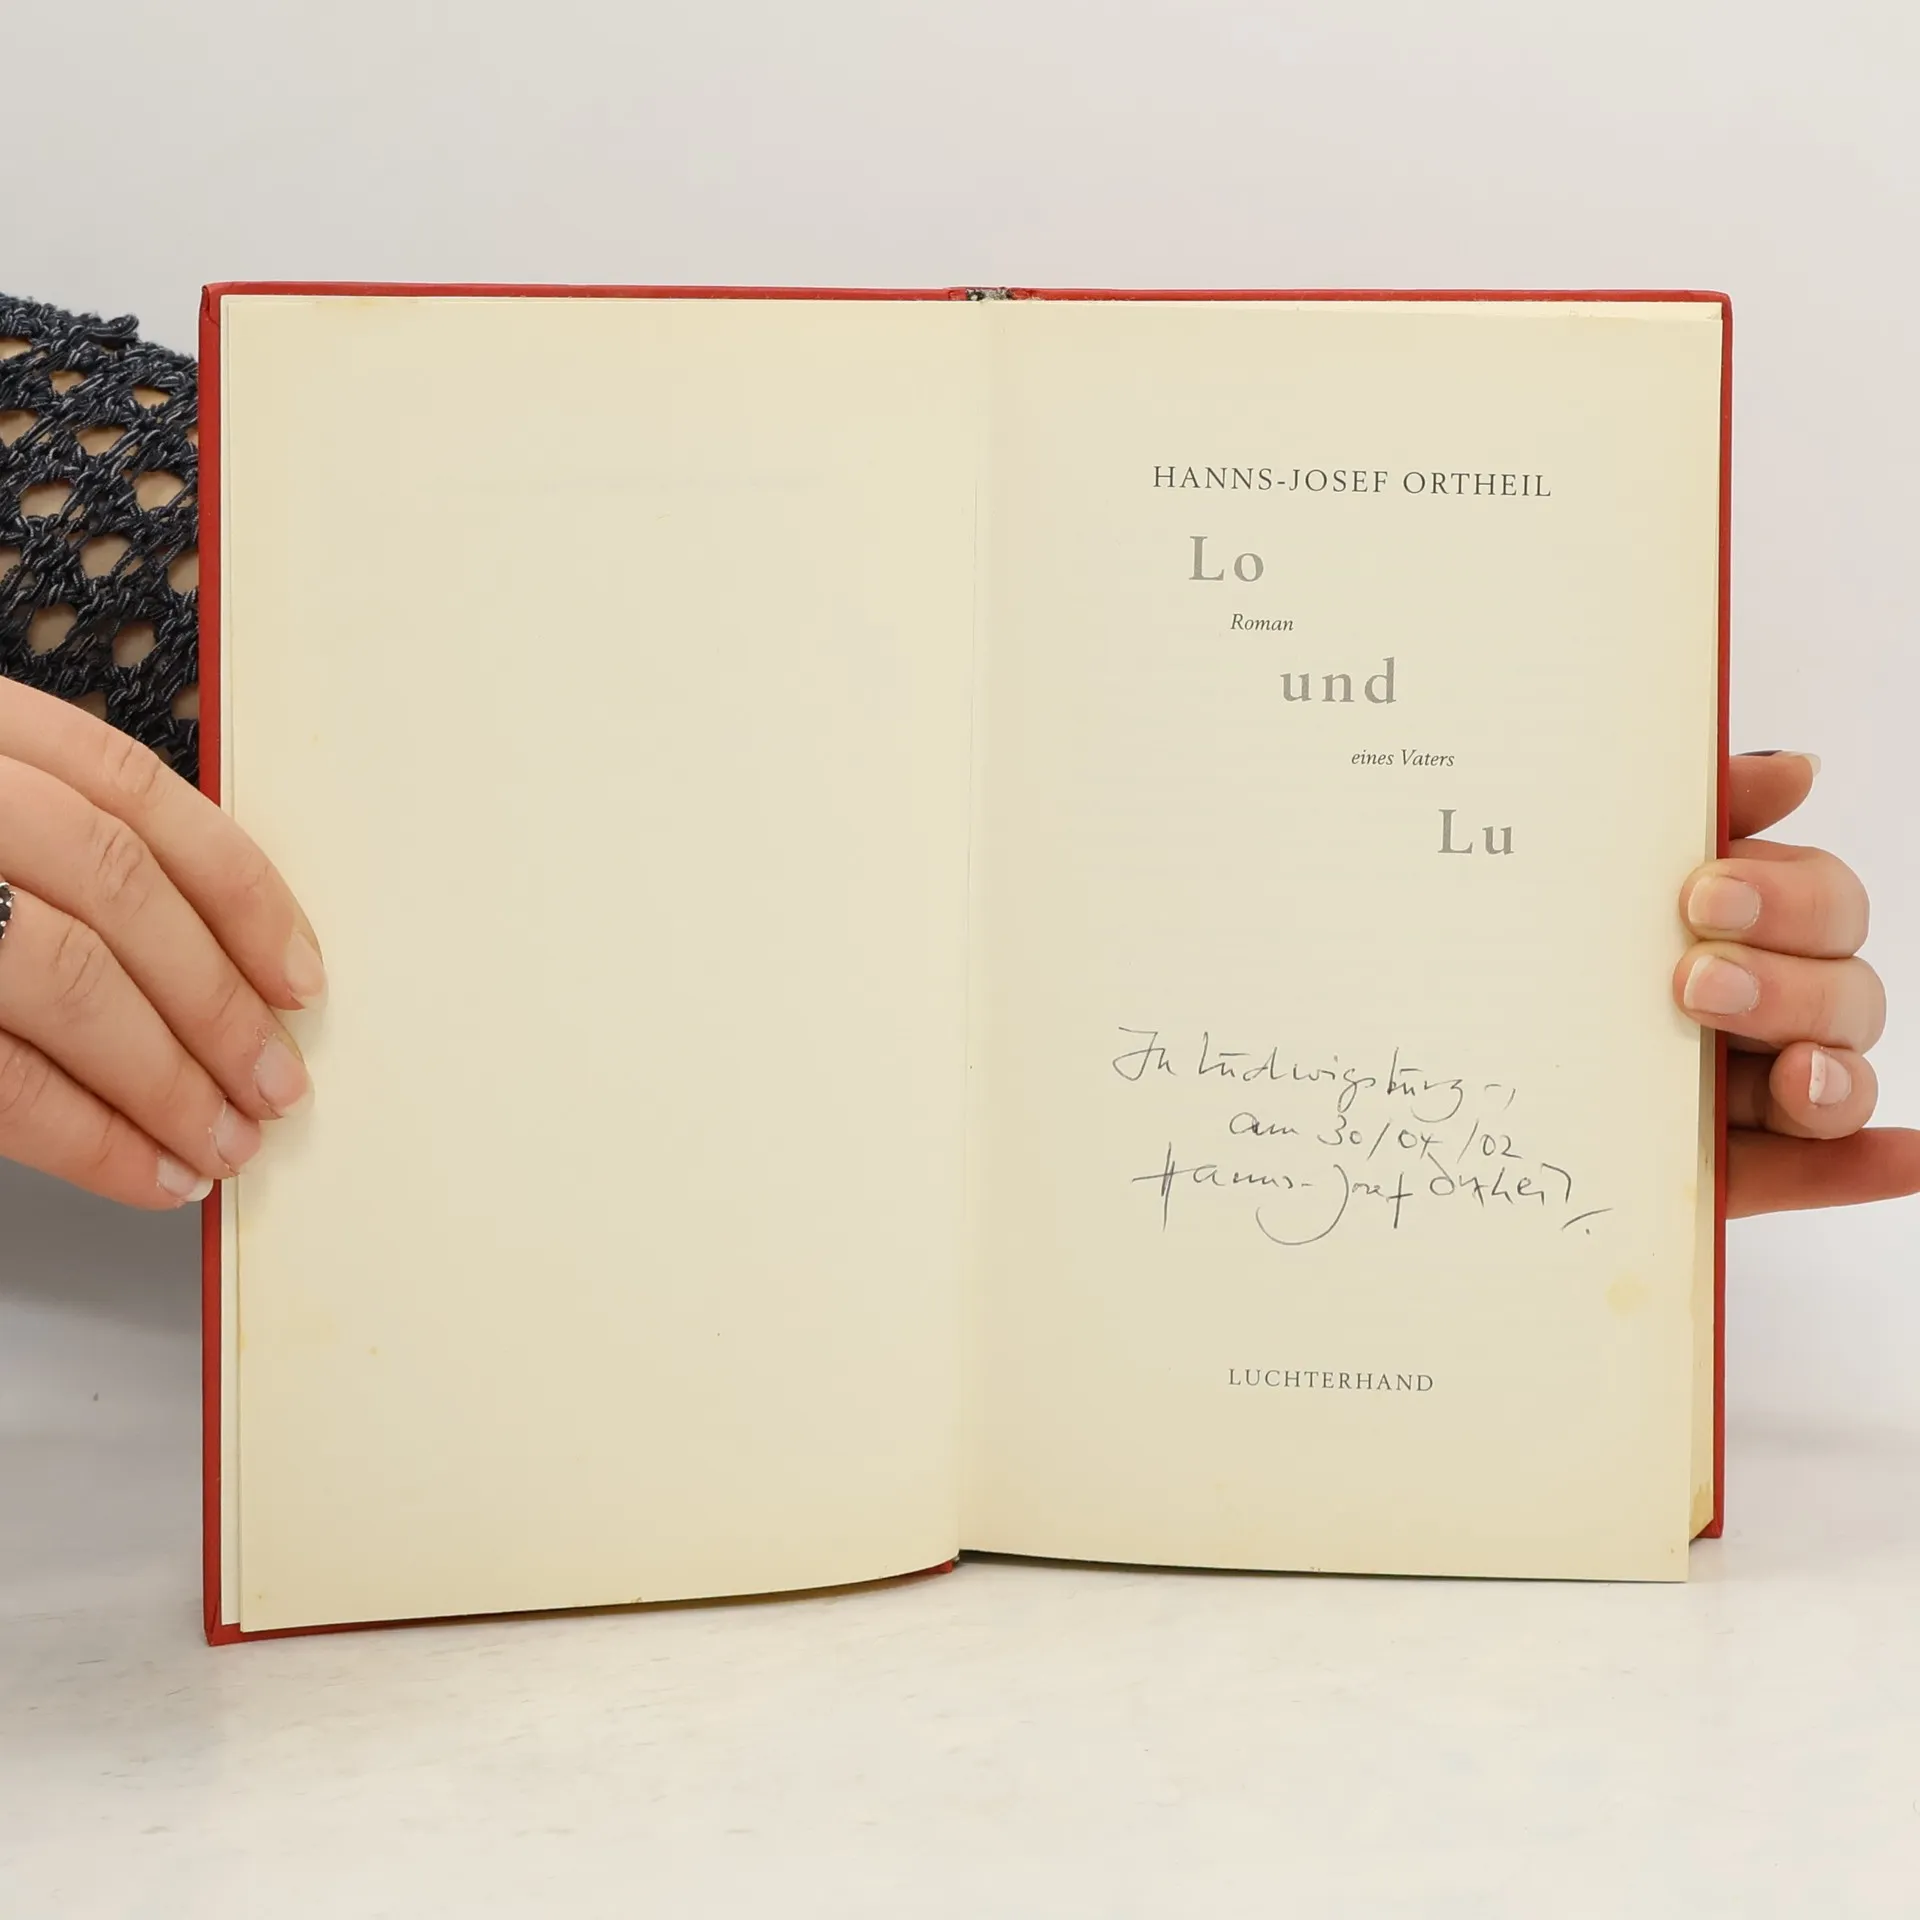 HANNS-JOSEF ORTHEIL
Lo
Roman
und
eines Vaters
Lu
In Ludwigsburg -,
am 30/04/02
Hanns-Josef Ortheil.
LUCHTERHAND